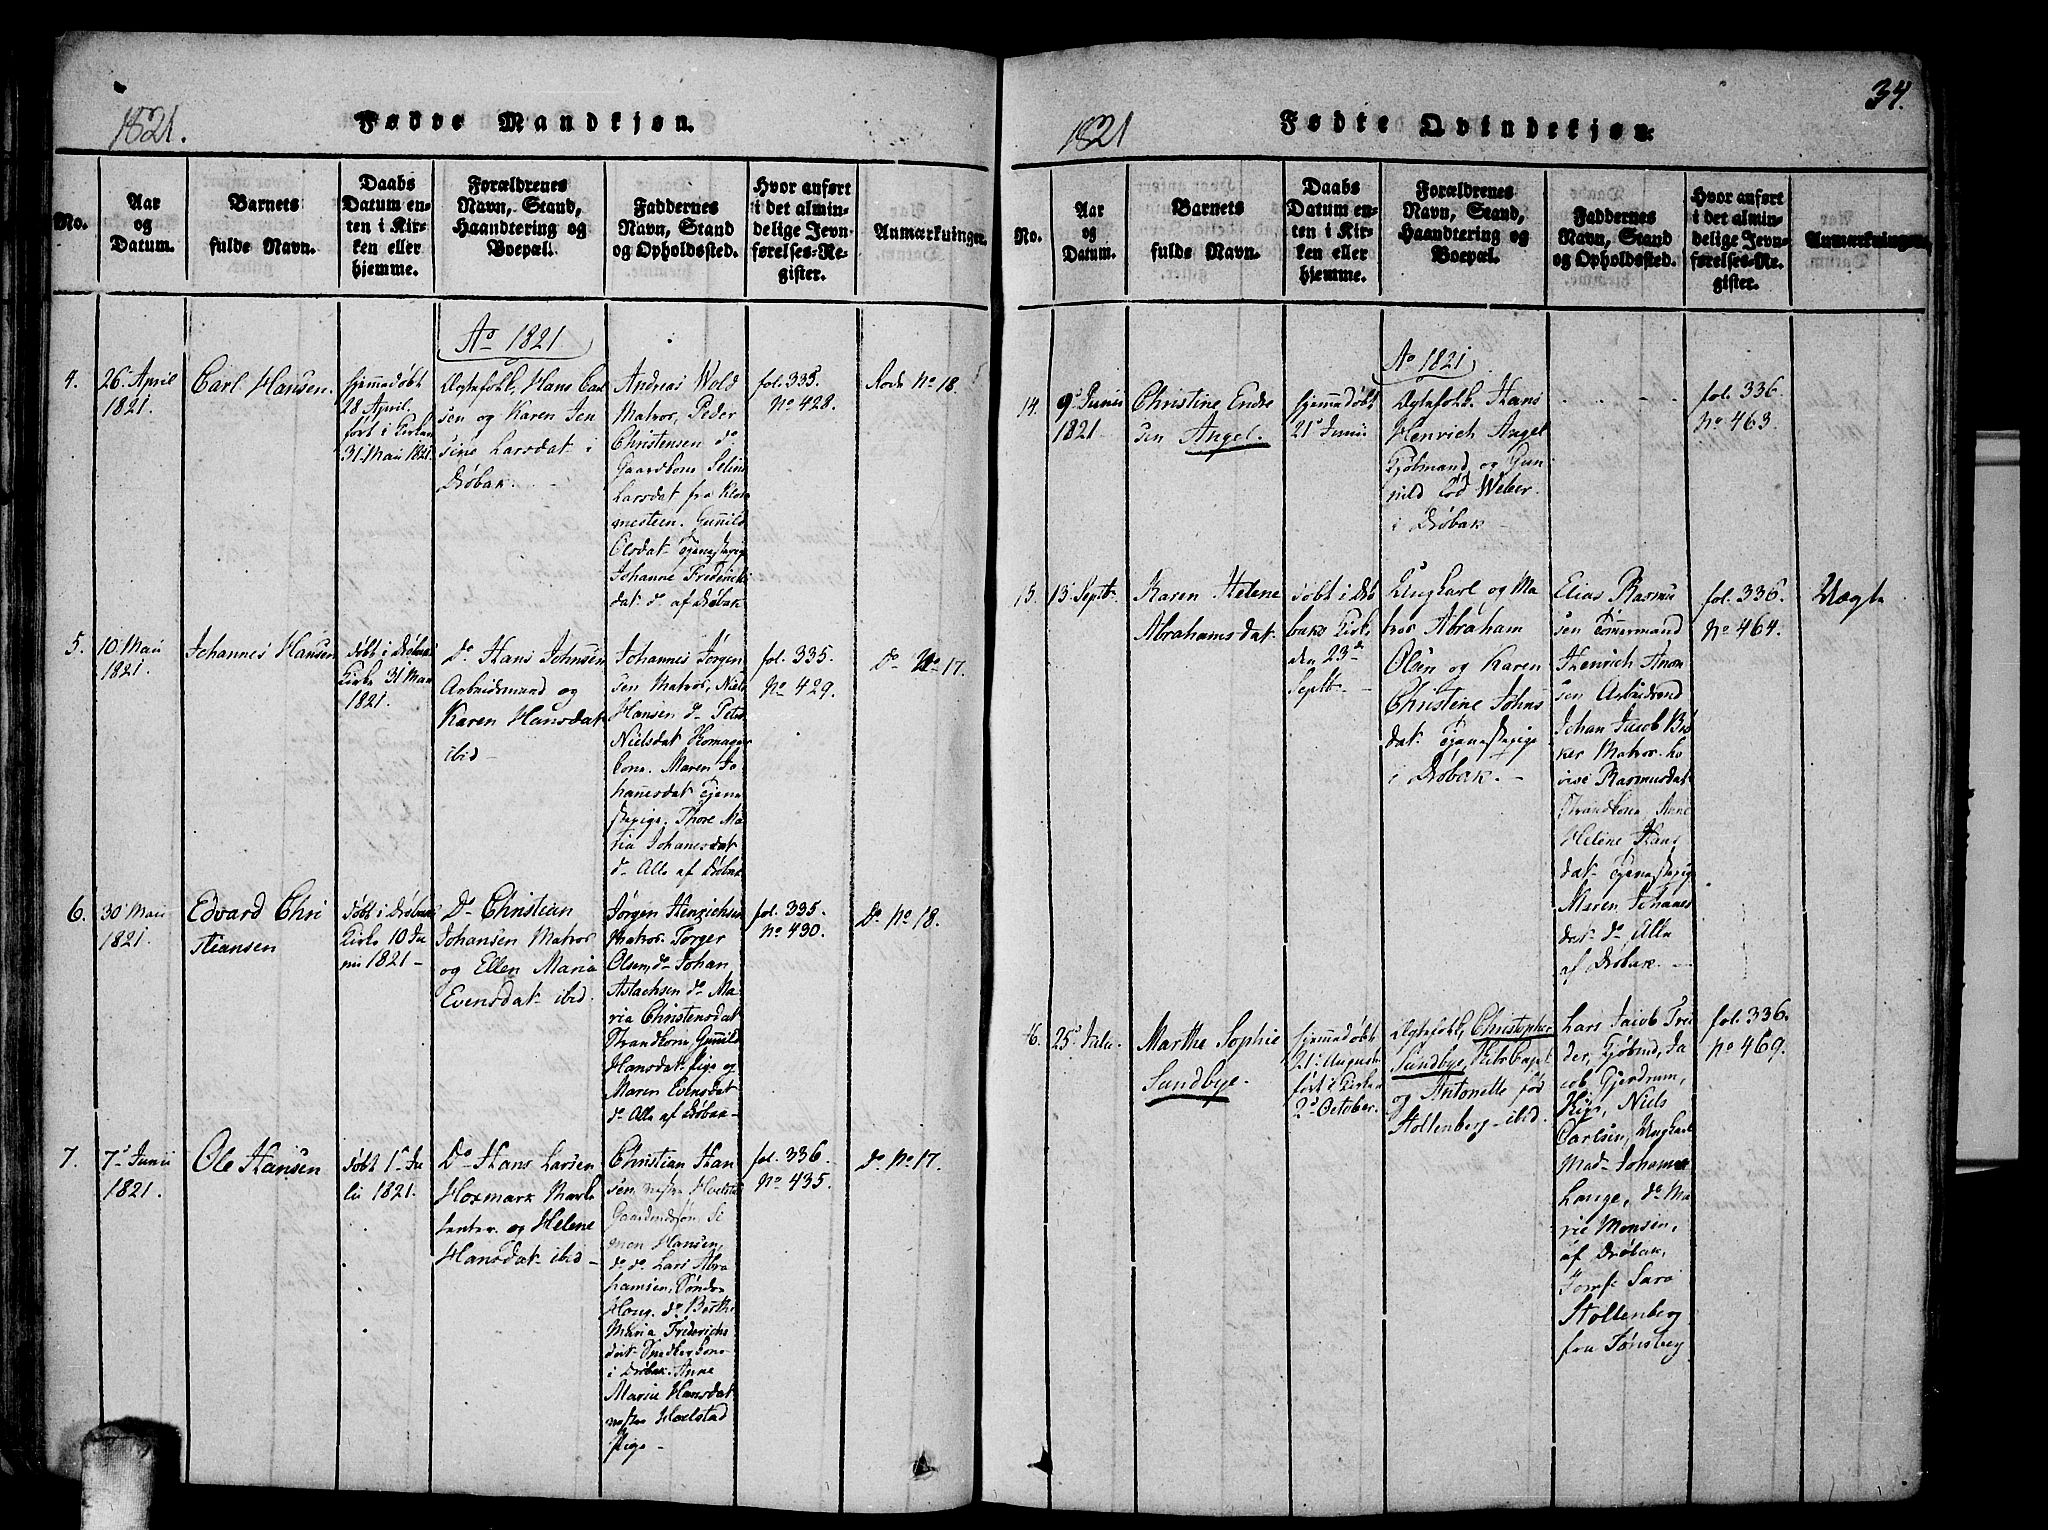 1821.
Fødde Mandkjøn.
No.
Aar
og
Datum.
Barnets
fulde Navn.
Daabs
Datum en-
ten i Kir-
ken eller
hjemme.
Forældrenes
Navn, Stand,
Haandtering og
Boepæl.
Faddernes
Navn, Stand
og Opholdssted.
Hvor anført
i det almin-
delige Jevn-
førelses-Re-
gister.
Anmærkninger.
Ao 1821
4.
26. April
1821.
Carl Hansen.
hjemmedøbt
28 April.
ført i Kirken
31. Maii 1821.
Ægtefolk, Hans Carl
sen og Karen Jen
sine Larsdat i
Drøbak.
Andreas Wold
Matros, Peder
Christensen do
Gaardkone
Larsdat fra
mesteen. Gunild
Olsdat Tjenestepige
Johanne Frederichs
dat do af Drøbak
fol. 335.
No 428.
No 18.
5.
10 Maii
1821.
Johannes Hansen
døbt i Drøbaks
Kirke 31 Maii
1821.
Do Hans Johnsen
Arbeidsmand og
Karen Hansdat
ibid
Johannes Jørgen
sen Matros, Niels
Hansen do
Nielsdat
kone. Maren Jo
hanesdat Tjene
stepige. Thore Ma
ria Johanesdat
do Alle af Drøbak
fol. 335.
No 429.
Do No 17.
6.
30 Maii
1821.
Edvard Chri
stiansen
døbt i Drøbaks
Kirke 10 Ju
nii 1821
Do Christian
Johansen Matros
og Ellen Maria
Evensdat ibid.
Jørgen Henrichsen
Matros. Torger
Olsen, do Johan
Aslachsen do Ma
ria Christensdat
Strandkone, Gunild
Hansdat Pige og
Maren Evensdat
do Alle af Drøbak
fol. 335.
No 430.
Do No 18.
7.
7 Junii
1821.
Ole Hansen
døbt 1 Ju
lii 1821.
Do Hans Larsen
Hoxmark
og Helene
Hansdat ibid
Christian Han
sen,
Gaardmdsøn, Si
mon Hansen,
do do Lars Abra
hamsen, Søndre
Houg. do Berthe
Maria Frederichs
dat
i Drøbak. Anne
Marie Hansdat
Hoelstad
Pige
fol. 336.
No 435.
Do No 17.
34.
1821
Fødte Qvindekjøn.
No.
Aar
og
Datum.
Barnets
fulde Navn.
Daabs
Datum en-
ten i Kir-
ken eller
hjemme.
Forældrenes
Navn, Stand,
Haandtering og
Boepæl.
Faddernes
Navn, Stand
og Opholdssted.
Hvor anført
i det almin-
delige Jevn-
førelses-Re-
gister.
Anmærkninger.
Ao 1821
14.
9 Junii
1821
Christine Endre
sen Angel.
hjemmedøbt
21 Junii
Ægtefolk. Hans
Henrich Angel
Kjøbmand og Gun
nild fød Weber.
i Drøbak
fol. 336
No 463.
15.
13. Septb.
Karen Helene
Abrahamsdat
døbt i Drø
baks Kirke
den 23
Septb.
Ungkarl og Ma
tros Abraham
Olsen og Karen
Christine Johns
dat Tjenestepige
i Drøbak.
Elias Rasmu
sen Tømermand
Henrich
sen Arbeidsmd
Johan Jacob
Matros. Lo
vise Rasmusdat
Strandkone Anne
Helene Hans
dat Tjenestepige
Maren Johanes
dat do Alle
af Drøbak.
fol. 336.
No 464.
Uægte
16.
25 Julii
Marthe Sophie
Sundbye.
hjemmedøbt
21 August
ført i Kirken
2 October.
Ægtefolk, Christopher
Sundbye,
og Antonette fød
Stoltenberg ibid.
Lars Jacob
Kjøbmd, Ja
cob Gjerdrum,
Niels
Carlsen, Ungkarl
Mad Johanne
Lange, do Ma
rie Monsen,
af Drøbak,
Jomf. Sara
Stoltenberg
fra Tønsberg
fol. 336.
No 469.